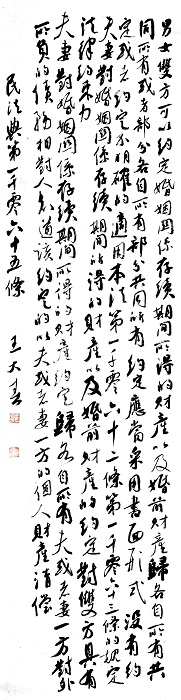 男女雙方可以約定婚姻關係存續期間所得的財產以及婚前財產歸各自所有共
同所有或者部分各自所有部分共同所有約定應當采用書面形式沒有約
定或者約定不明確的適用本法第一千零六十二條第一千零六十三條的規定
夫妻對婚姻關係存續期間所得的財產以及婚前財產的約定對雙方具有
法律約束力
夫妻對婚姻關係存續期間所得的財產約定歸各自所有夫或者妻一方對外
所負的債務相對人知道該約定的以夫或者妻一方的個人財產清償
民法典第一千零六十五條
王大